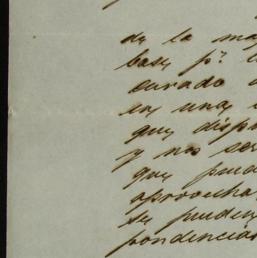 de la ma
base p.ª l
curado
en una
que disp
y nos se
que pue
aprovecha
su pruden
pondencia